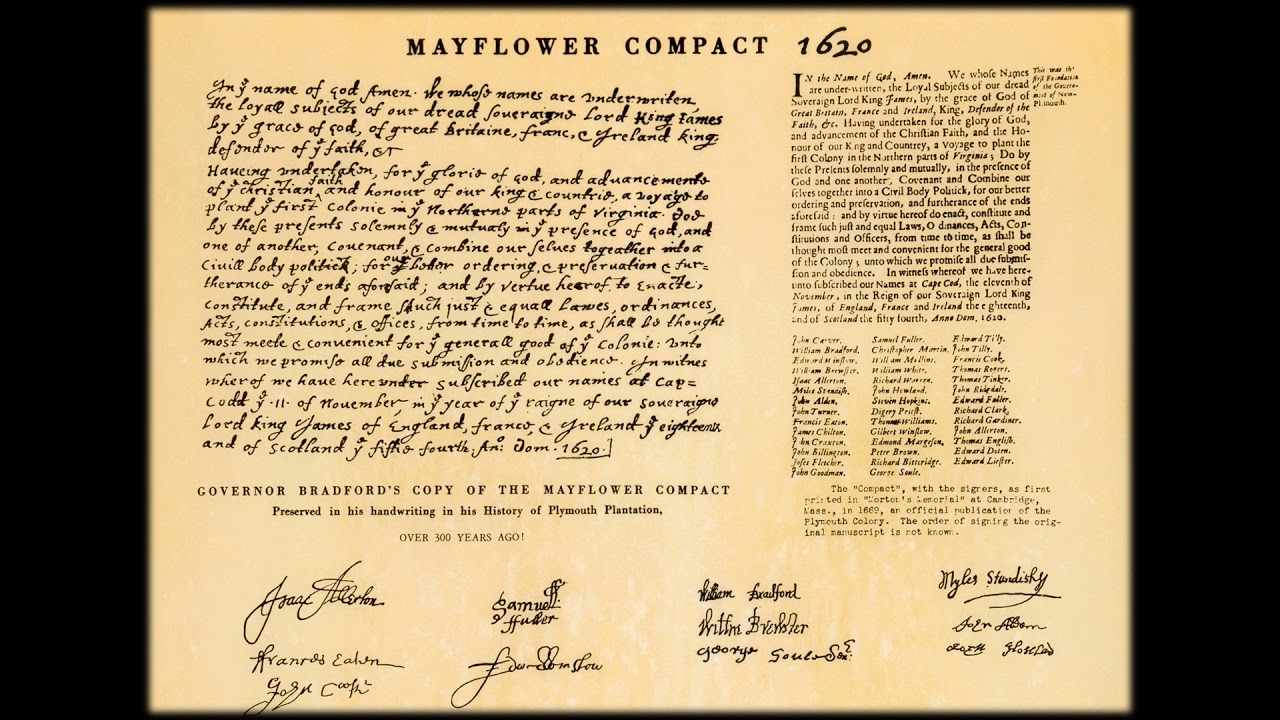 MAYFLOWER COMPACT 1620
In yͤ name of god Amen. We whose names are underwriten,
the loyall subjects of our dread soveraigne Lord King James
by yͤ grace of god, of great Britaine, franc, & Ireland king,
defender of yͤ faith, &c
Haveing undertaken, for yͤ glorie of god, and advancemente
of yͤ christian faith and honour of our king & countrie, a voyage to
plant yͤ first colonie in yͤ Northerne parts of Virginia. Doe
by these presents solemnly & mutualy in yͤ presence of god, and
one of another, covenant, & combine our selves togeather into a
Civill body politick; for our better ordering, & preservation & fur=
therance of yͤ ends aforesaid; and by vertue hearof to Enacte,
constitute, and frame shuch just & equall lawes, ordinances,
Acts, constitutions, & offices, from time to time, as shall be thought
most meete & convenient for yͤ generall good of yͤ Colonie: unto
which we promise all due submission and obedience. In witnes
wherof we have hereunder subscribed our names at Cap=
Codd yͤ .11. of November, in yͤ year of yͤ raigne of our soveraigne
Lord king James of England, france, & Ireland yͤ eighteenth
and of Scotland yͤ fiftie fourth. An̊: Dom. 1620.]
GOVERNOR BRADFORD'S COPY OF THE MAYFLOWER COMPACT
Preserved in his handwriting in his History of Plymouth Plantation,
OVER 300 YEARS AGO!
IN the Name of God, Amen. We whose Names
are under-written, the Loyal Subjects of our dread
Soveraign Lord King James, by the grace of God of
Great Britain, France and Ireland, King, Defender of the
Faith, &c. Having undertaken for the glory of God,
and advancement of the Christian Faith, and the Ho-
nour of our King and Countrey, a Voyage to plant the
first Colony in the Northern parts of Virginia; Do by
these Presents solemnly and mutually, in the presence of
God and one another, Covenant and Combine our
selves together into a Civil Body Politick, for our better
ordering and preservation, and furtherance of the ends
aforesaid: and by virtue hereof do enact, constitute and
frame such just and equal Laws, O dinances, Acts, Con-
stitutions and Officers, from time to time, as shall be
thought most meet and convenient for the general good
of the Colony; unto which we promise all due submis-
sion and obedience. In witness whereof we have here-
unto subscribed our Names at Cape Cod, the eleventh of
November, in the Reign of our Sovereign Lord King
James, of England, France and Ireland the eighteenth,
and of Scotland the fifty fourth, Anno Dom. 1620.
This was the
first Foundation
of the Govern-
ment of New-
Plimouth.
John Carver. Samuel Fuller. Edward Tilly.
William Bradford. Christopher Martin. John Tilly.
Edward Winslow. William Mullins. Francis Cook.
William Brewster. William White. Thomas Rogers.
Isaac Allerton. Richard Warren. Thomas Tinker.
Miles Standish. John Howland. John Ridgdale.
John Alden. Steven Hopkins. Edward Fuller.
John Turner. Digery Priest. Richard Clark.
Francis Eaton. Thomas Williams. Richard Gardiner.
James Chilton. Gilbert Winslow. John Allerton.
John Craxton. Edmond Margeson. Thomas English.
John Billington. Peter Brown. Edward Doten.
Joses Fletcher. Richard Bitteridge. Edward Liester.
John Goodman. George Soule.
The "Compact", with the signers, as first
printed in "Morton's Memorial" at Cambridge,
Mass., in 1669, an official publication of the
Plymouth Colony. The order of signing the orig-
inal manuscript is not known.
Isaac Allerton
Samuell
ffuller
William Bradford
Myles Standish
Willm Brewster
John Alden
Frances Eaten
Edw Winslow
George Soule Senʳ:
John Cooke